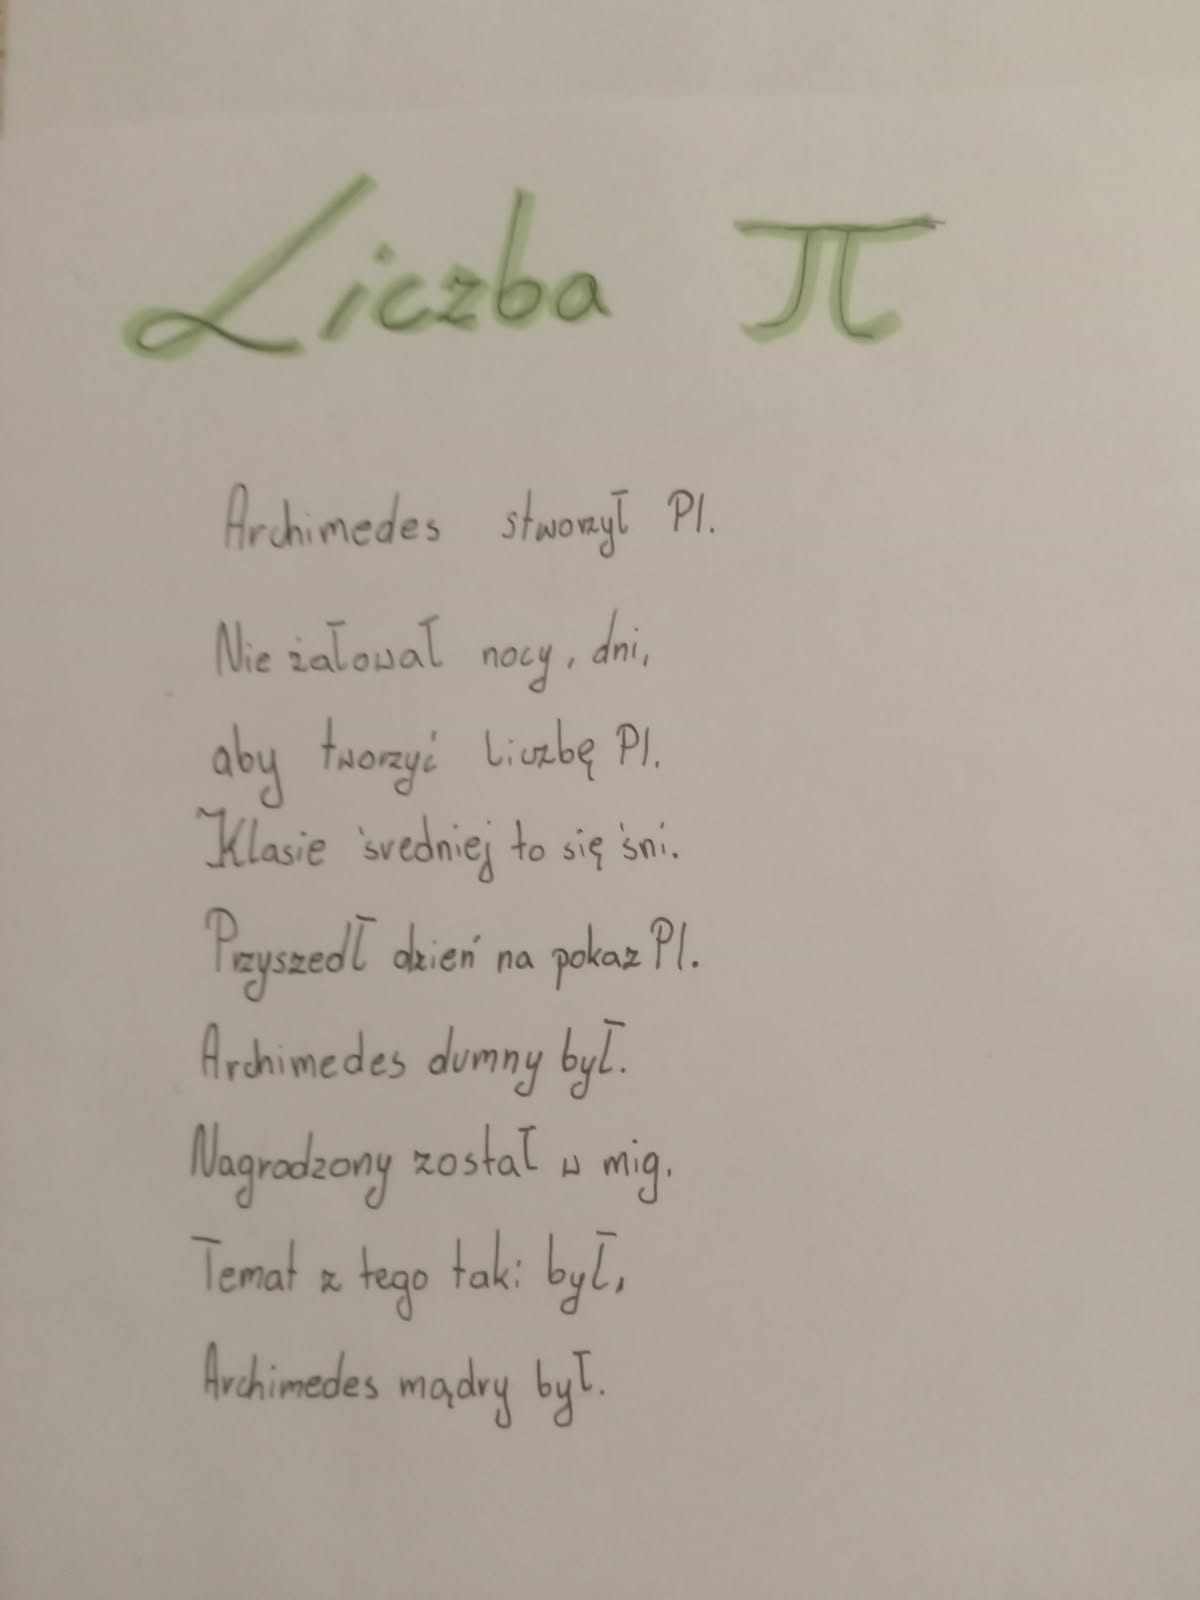 Liczba π
Archimedes stworzył PI.
Nie żałował nocy, dni,
aby tworzyć liczbę PI.
Klasie średniej to się śni.
Przyszedł dzień na pokaz PI.
Archimedes dumny był.
Nagrodzony został w mig.
Temat z tego taki był,
Archimedes mądry był.